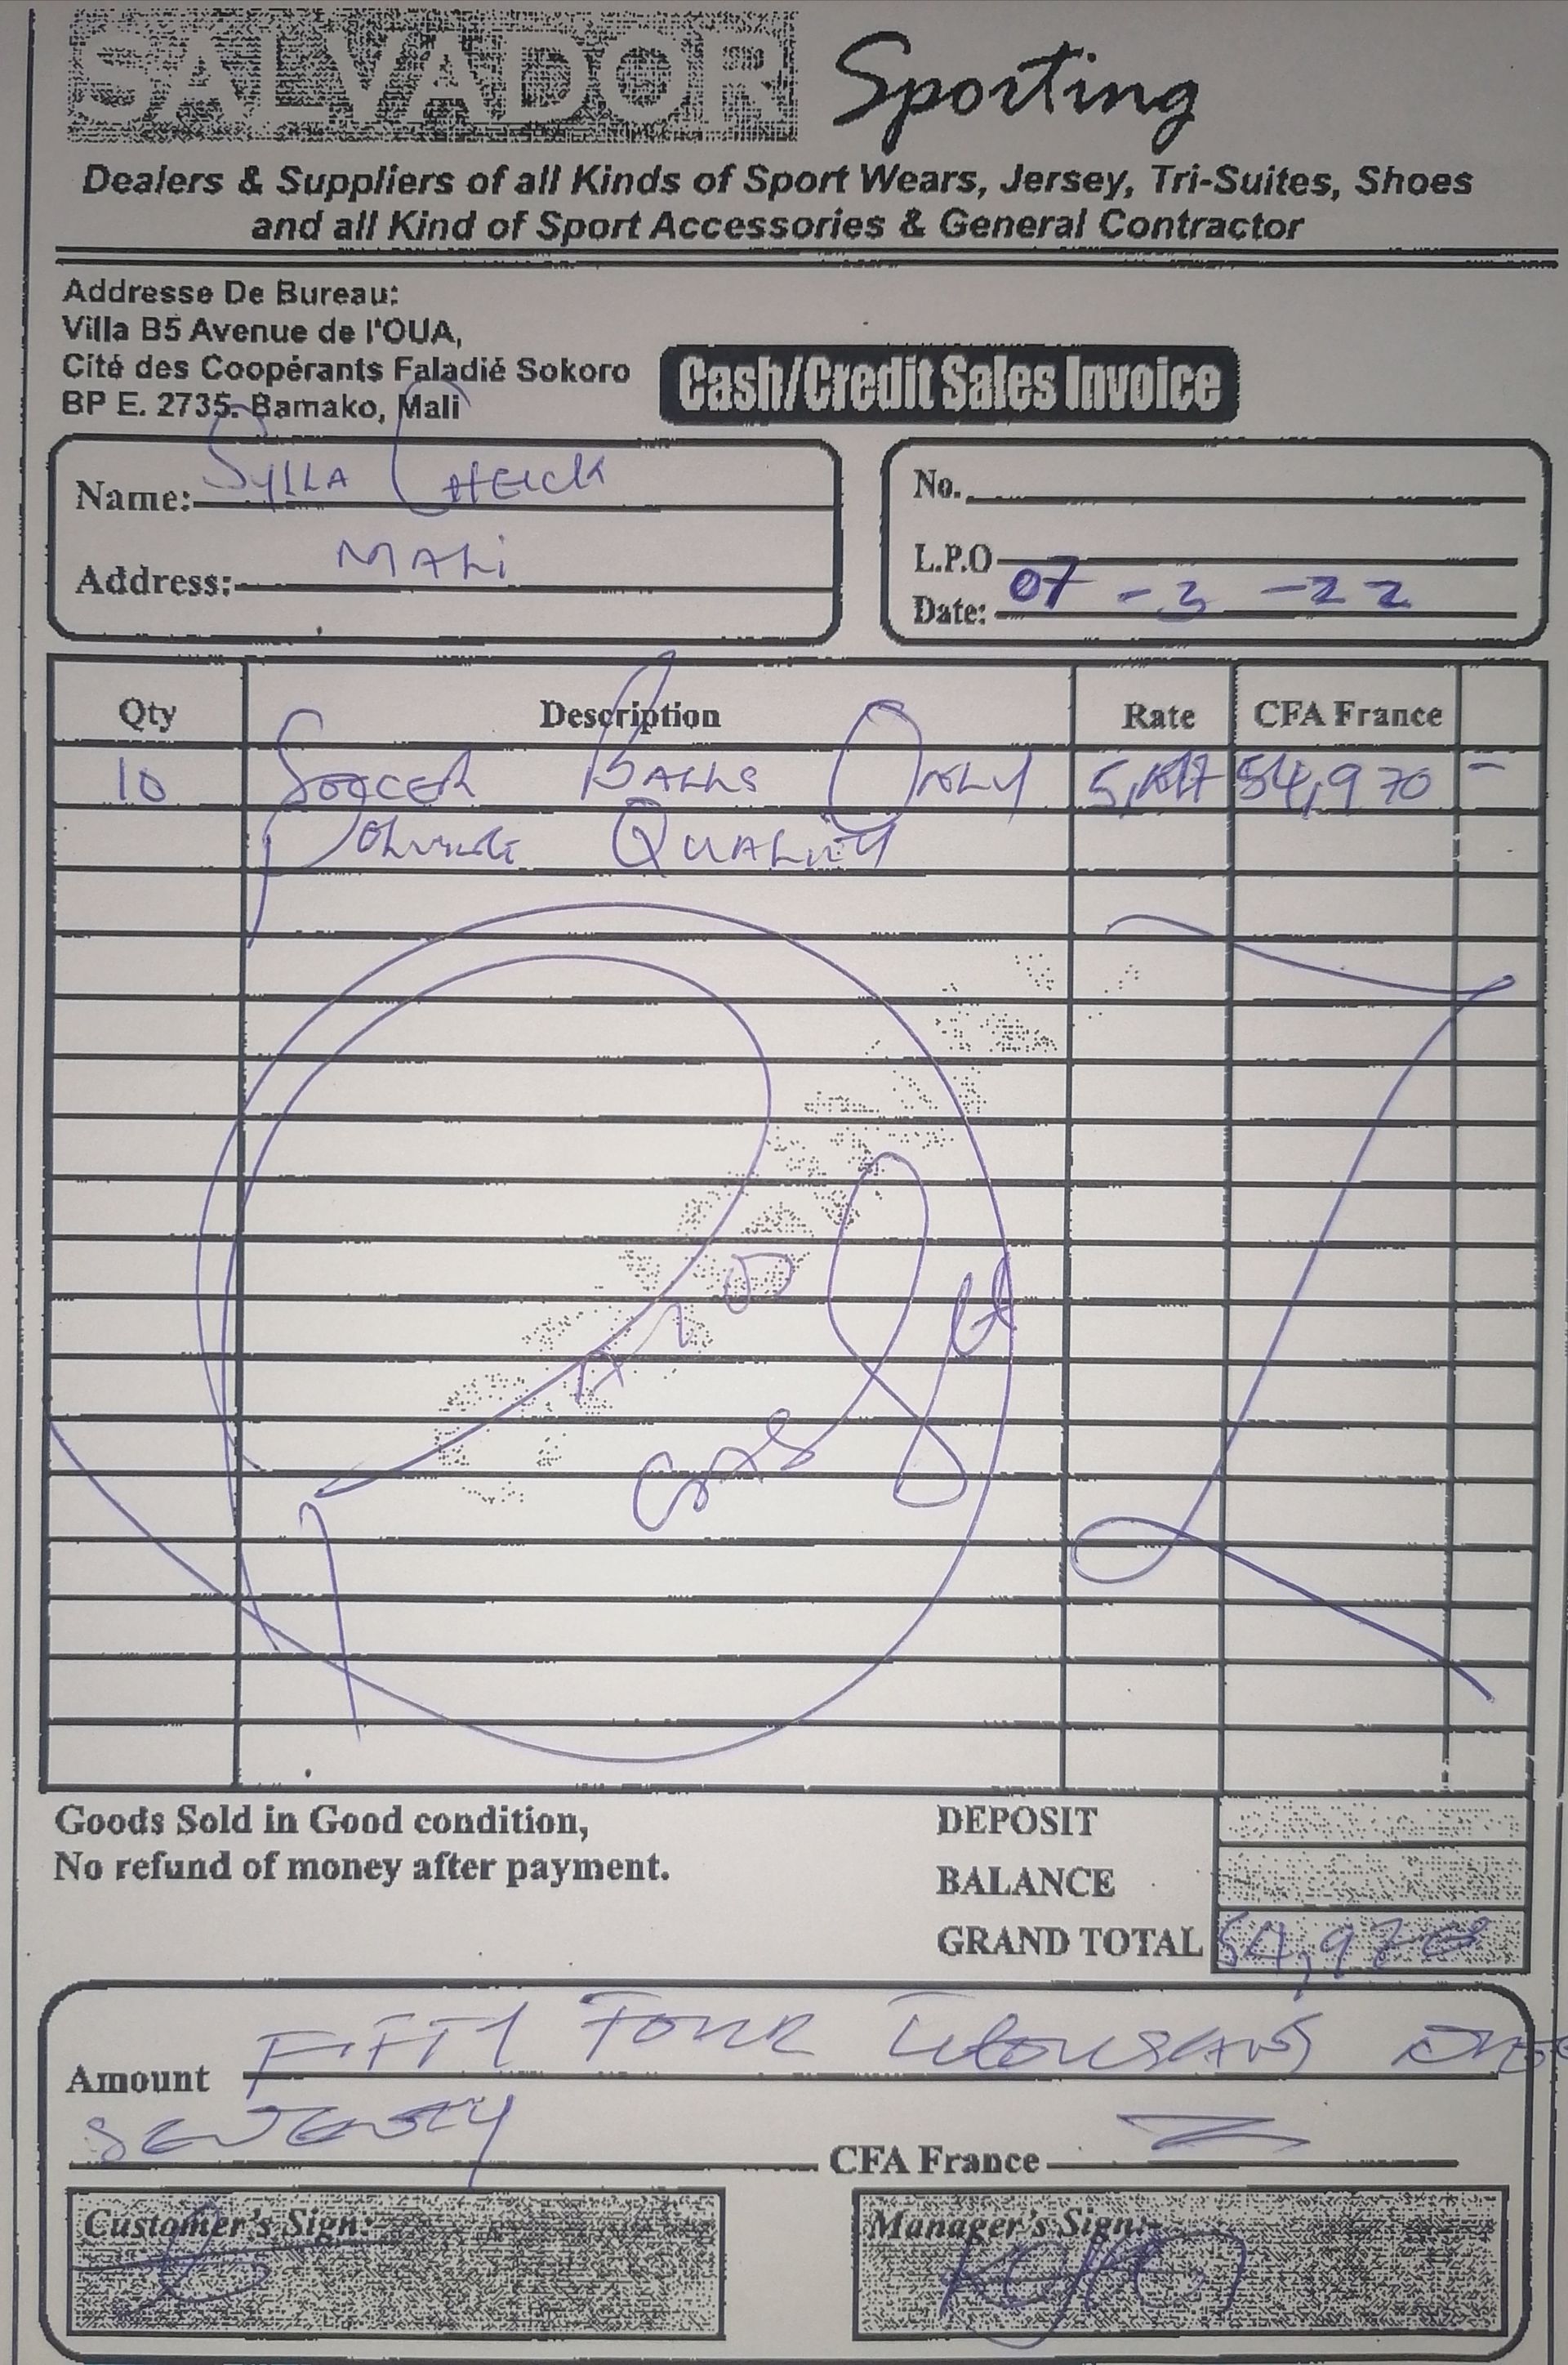 SALVADOR Sporting
Dealers & Suppliers of all Kinds of Sport Wears, Jersey, Tri-Suites, Shoes
and all Kind of Sport Accessories & General Contractor
Addresse De Bureau:
Villa B5 Avenue de l'OUA,
Cité des Coopérants Faladié Sokoro
BP E. 2735. Bamako, Mali
Cash/Credit Sales Invoice
Name: SYLLA CHEICK
Address: MALi
No.
L.P.O
Date: 07 - 3 - 22
Qty Description Rate CFA France
10 SOCCER BALLS ONLY 54,970 -
QUALITY
Goods Sold in Good condition,
No refund of money after payment.
DEPOSIT
BALANCE
GRAND TOTAL 54,970
Amount FIFTY FOUR THOUSAND
SEVENTY CFA France
Customer's Sign:
Manager's Sign: